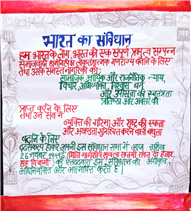 भारत का संविधान
हम भारत के लोग, भारत को एक सम्पूर्ण प्रभुत्व सम्पन्न
समाजवादी पंथनिरपेक्ष लोकतंत्रात्मक गणराज्य बनाने के लिए
तथा उसके समस्त नागरिकों को:
सामाजिक आर्थिक और राजनैतिक न्याय,
विचार, अभिव्यक्ति, विश्वास, धर्म
और उपासना की स्वतंत्रता
प्रतिष्ठा और अवसर की
प्राप्त कराने के लिए
तथा उन सब में
व्यक्ति की गरिमा और राष्ट्र की एकता
और अखण्डता सुनिश्चित करने वाली बंधुता
बढ़ाने के लिए
होकर अपनी इस संविधान सभा में आज तारीख
26 नवम्बर
संविधान को अंगीकृत
अधिनियमित और आत्मार्पित करते हैं।